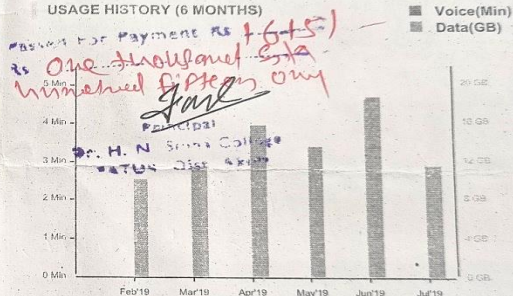 USAGE HISTORY (6 MONTHS)
Voice(Min)
Data(GB)
Passed For Payment Rs 1615/-
Rs One thousand Six
hundred fifteen only
Principal
Dr. H. N Sinha College
PATUR Dist Akola
5 Min
4 Min
3 Min
2 Min
1 Min
0 Min
20 GB
16 GB
12 GB
8 GB
4 GB
0 GB
Feb'19 Mar'19 Apr'19 May'19 Jun'19 Jul'19